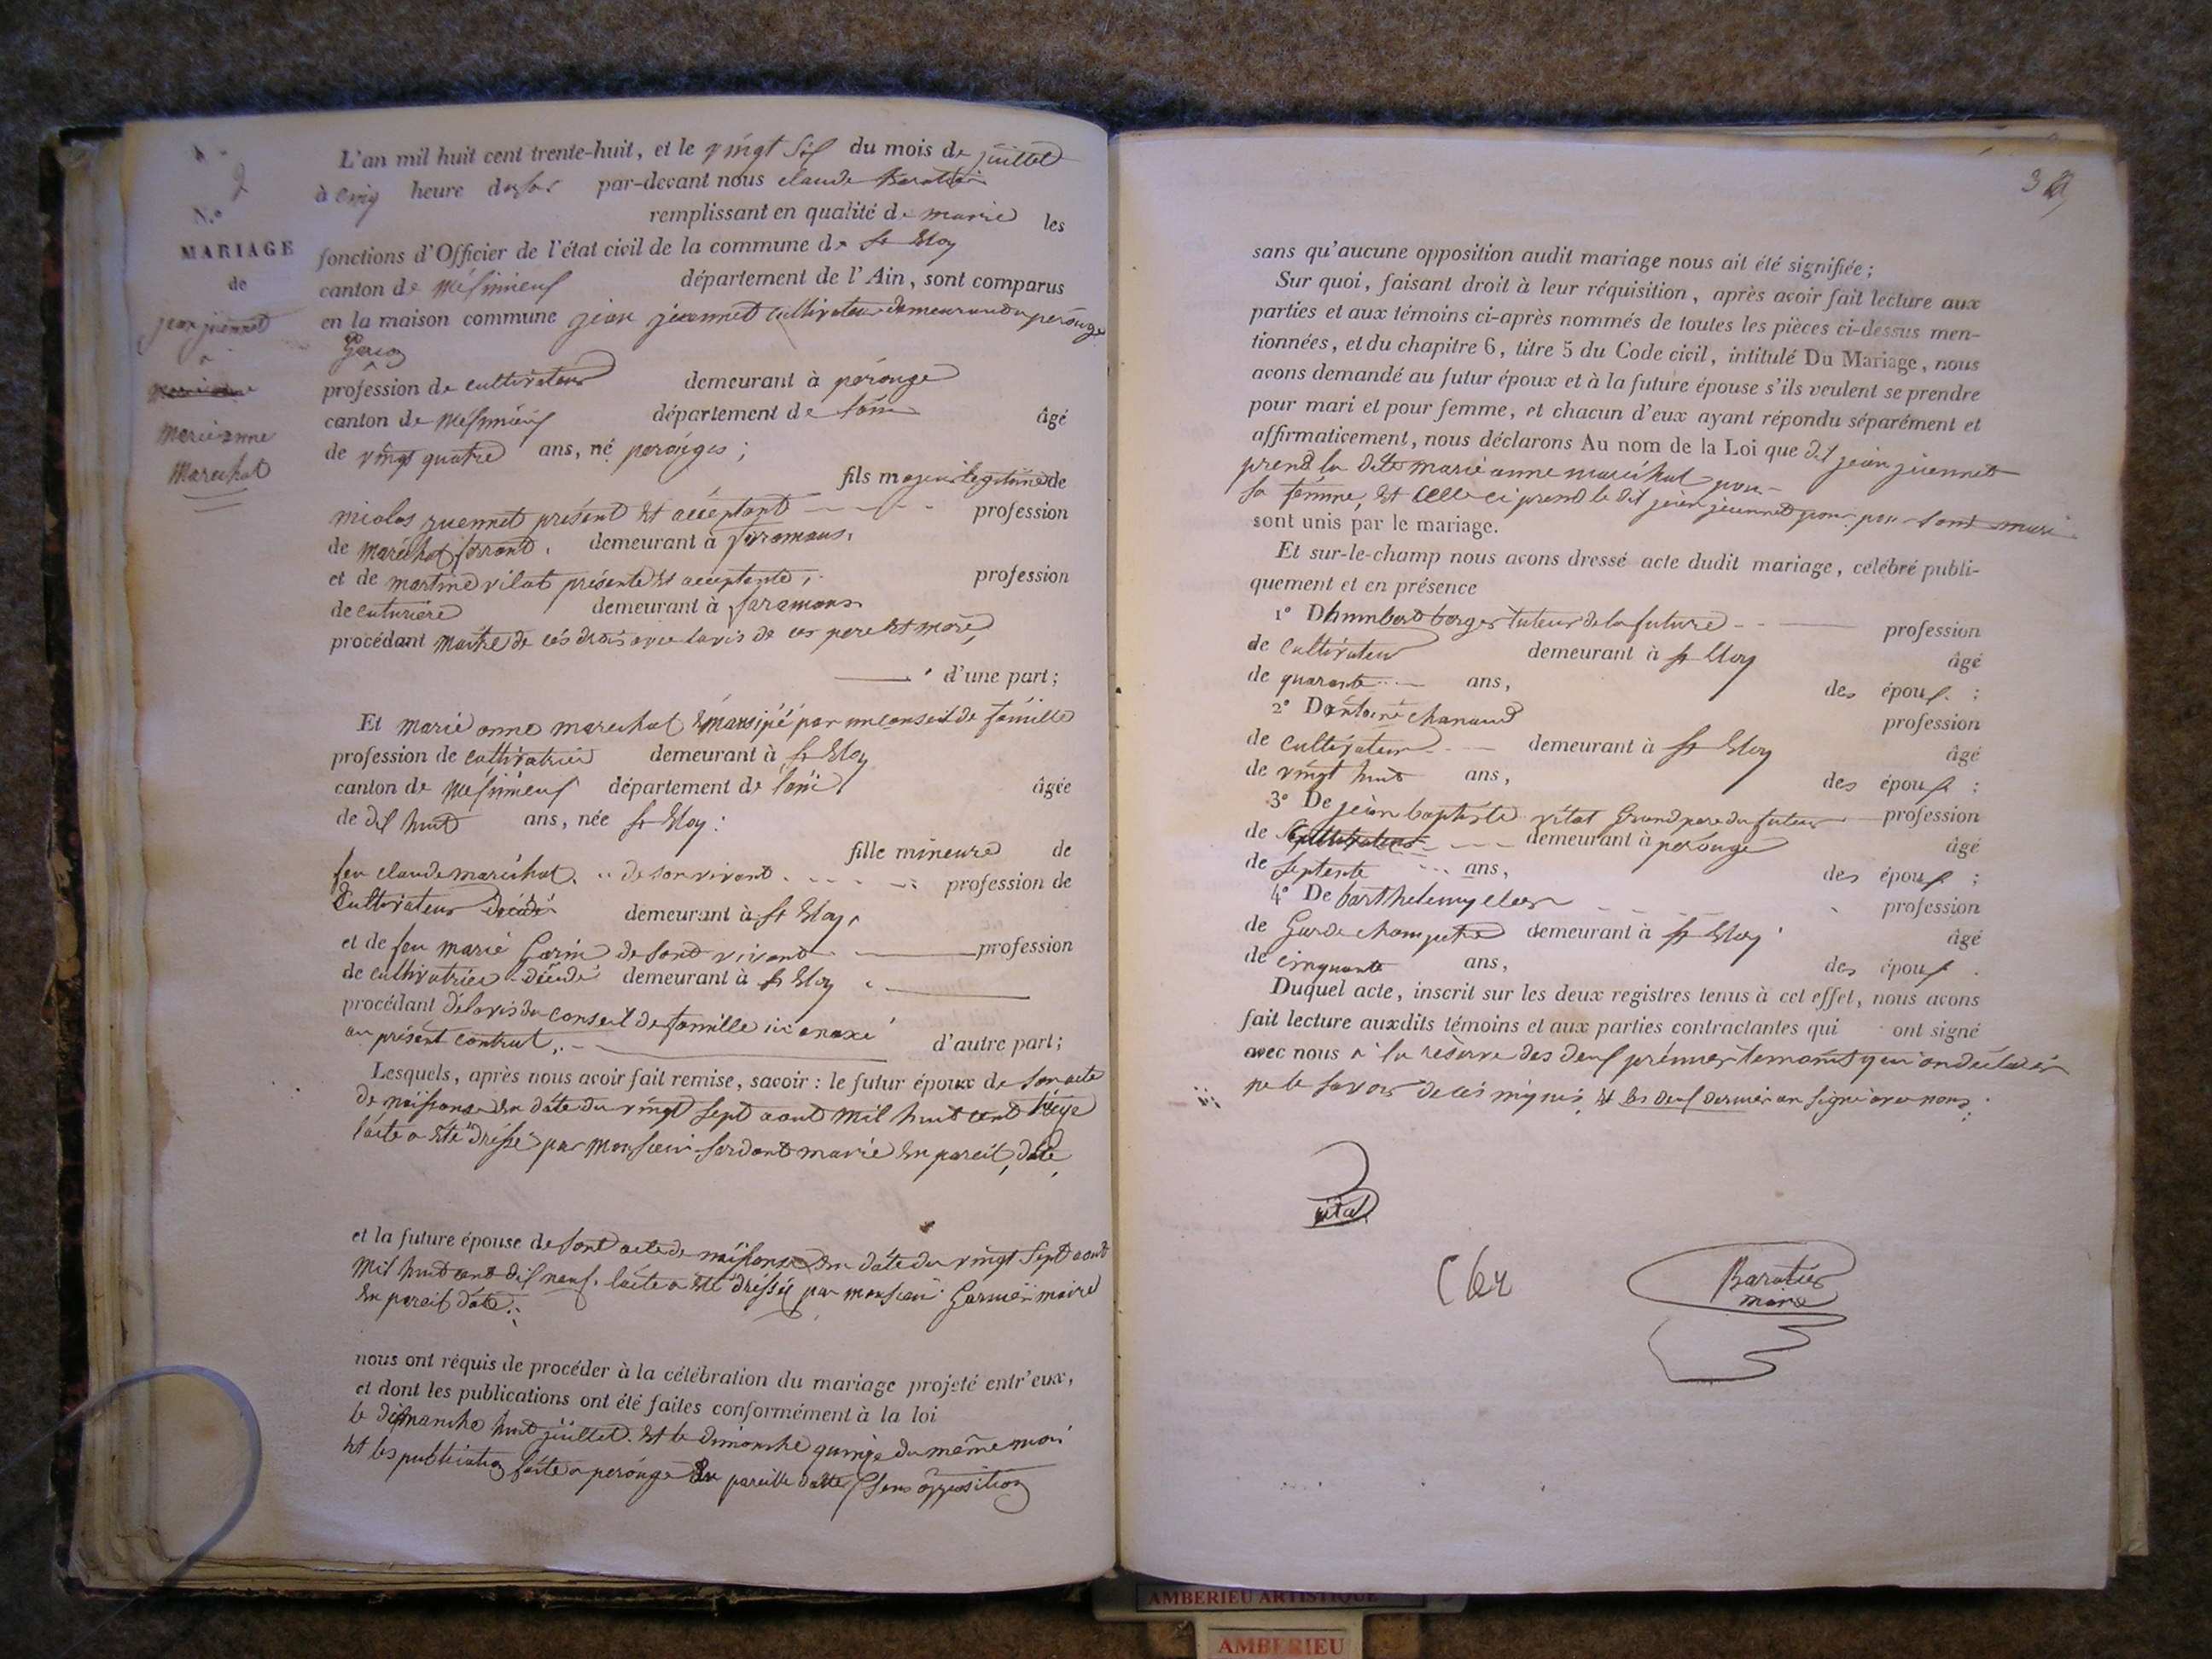 2
N.o
MARIAGE
de
jean juennet
a
marianne
marianne
marechat
L'an mil huit cent trente-huit, et le vingt six du mois de juillet
à cinq heure du soir par-devant nous claude Baratier
remplissant en qualité de marie les
fonctions d'Officier de l'état civil de la commune de st Eloy
canton de Mésimieux département de l'Ain, sont comparus
en la maison commune jean juennet cultivateur demeurand a perouge
profession de cultivateur demeurant à pérouge
canton de Mésimieux département de lain âgé
de vingt quatre ans, né perouges ;
fils majeur legitime de
nicolas juennet présent et acceptant profession
de maréchat ferrant. demeurant à faramans.
et de martine vilat présente et acceptente, profession
de cuturiere demeurant à faramans.
procédant maitre de cés drois avec lavis de ces pere et mere,
d'une part ;
Et marie anne marechat émansipé par un conseil de famille
profession de cultivatrice demeurant à st Eloy
canton de Mésimieux département de lain âgée
de dix huit ans, née st Eloy :
fille mineure de
feu claude maréchat. de son vivant profession de
Cultivateur décédé demeurant à st Eloy,
et de feu marie Garin de sont vivant profession
de cultivatrice décédé demeurant à st Eloy
procédant de lavis du conseil de famille ici anaxé
au présent contrat, d'autre part ;
Lesquels, après nous avoir fait remise, savoir : le futur époux de son acte
de naissance en date du vingt sept aout mil huit cent treize
lacte a été dréssé par monsieur serdant marie en pareil date,
et la future épouse de sont acte de naissance en date du vingt sept aout
mil huit cent dix neuf. lacte a été dréssé par monsieur Garnier maire
en pareil date.
nous ont requis de procéder à la célébration du mariage projeté entr'eux,
et dont les publications ont été faites conformément à la loi
le dimanche huit juillet. Et le dimanche quinze du même moi
Et les publication faite a perouge en pareille datte sans opposition
3
sans qu'aucune opposition audit mariage nous ait été signifiée ;
Sur quoi, faisant droit à leur réquisition, après avoir fait lecture aux
parties et aux témoins ci-après nommés de toutes les pièces ci-dessus men-
tionnées, et du chapitre 6, titre 5 du Code civil, intitulé Du Mariage, nous
avons demandé au futur époux et à la future épouse s'ils veulent se prendre
pour mari et pour femme, et chacun d'eux ayant répondu séparément et
affirmativement, nous déclarons Au nom de la Loi que dit jean juennet
prend la dite marie anne maréchat pour
sa femme, et celle ci prend le dit jean juennet pour sont mari
sont unis par le mariage.
Et sur-le-champ nous avons dressé acte dudit mariage, célébré publi-
quement et en présence
1° D humbert berger tuteur de la future profession
de cultivateur demeurant à st Eloy âgé
de quarante ans, des époux ;
2° D antoine chanaud profession
de cultivateur demeurant à st Eloy âgé
de vingt huit ans, des époux ;
3° De jean baptiste vitat Grand pere du futeur profession
de cultivateur demeurant à pérouge âgé
de septente ans, des époux ;
4° De barthelemy cler profession
de Garde champetre demeurant à st Eloy âgé
de cinquante ans, des époux.
Duquel acte, inscrit sur les deux registres tenus à cet effet, nous avons
fait lecture auxdits témoins et aux parties contractantes qui ont signé
avec nous a la réserve des deux prémier temoins qui on déclaré
ne le savoir de ces enquis, et les deux dernier on signé avec nous.
vital
Cler
Baratier
maire
AMBERIEU ARTISTIQUE
AMBERIEU